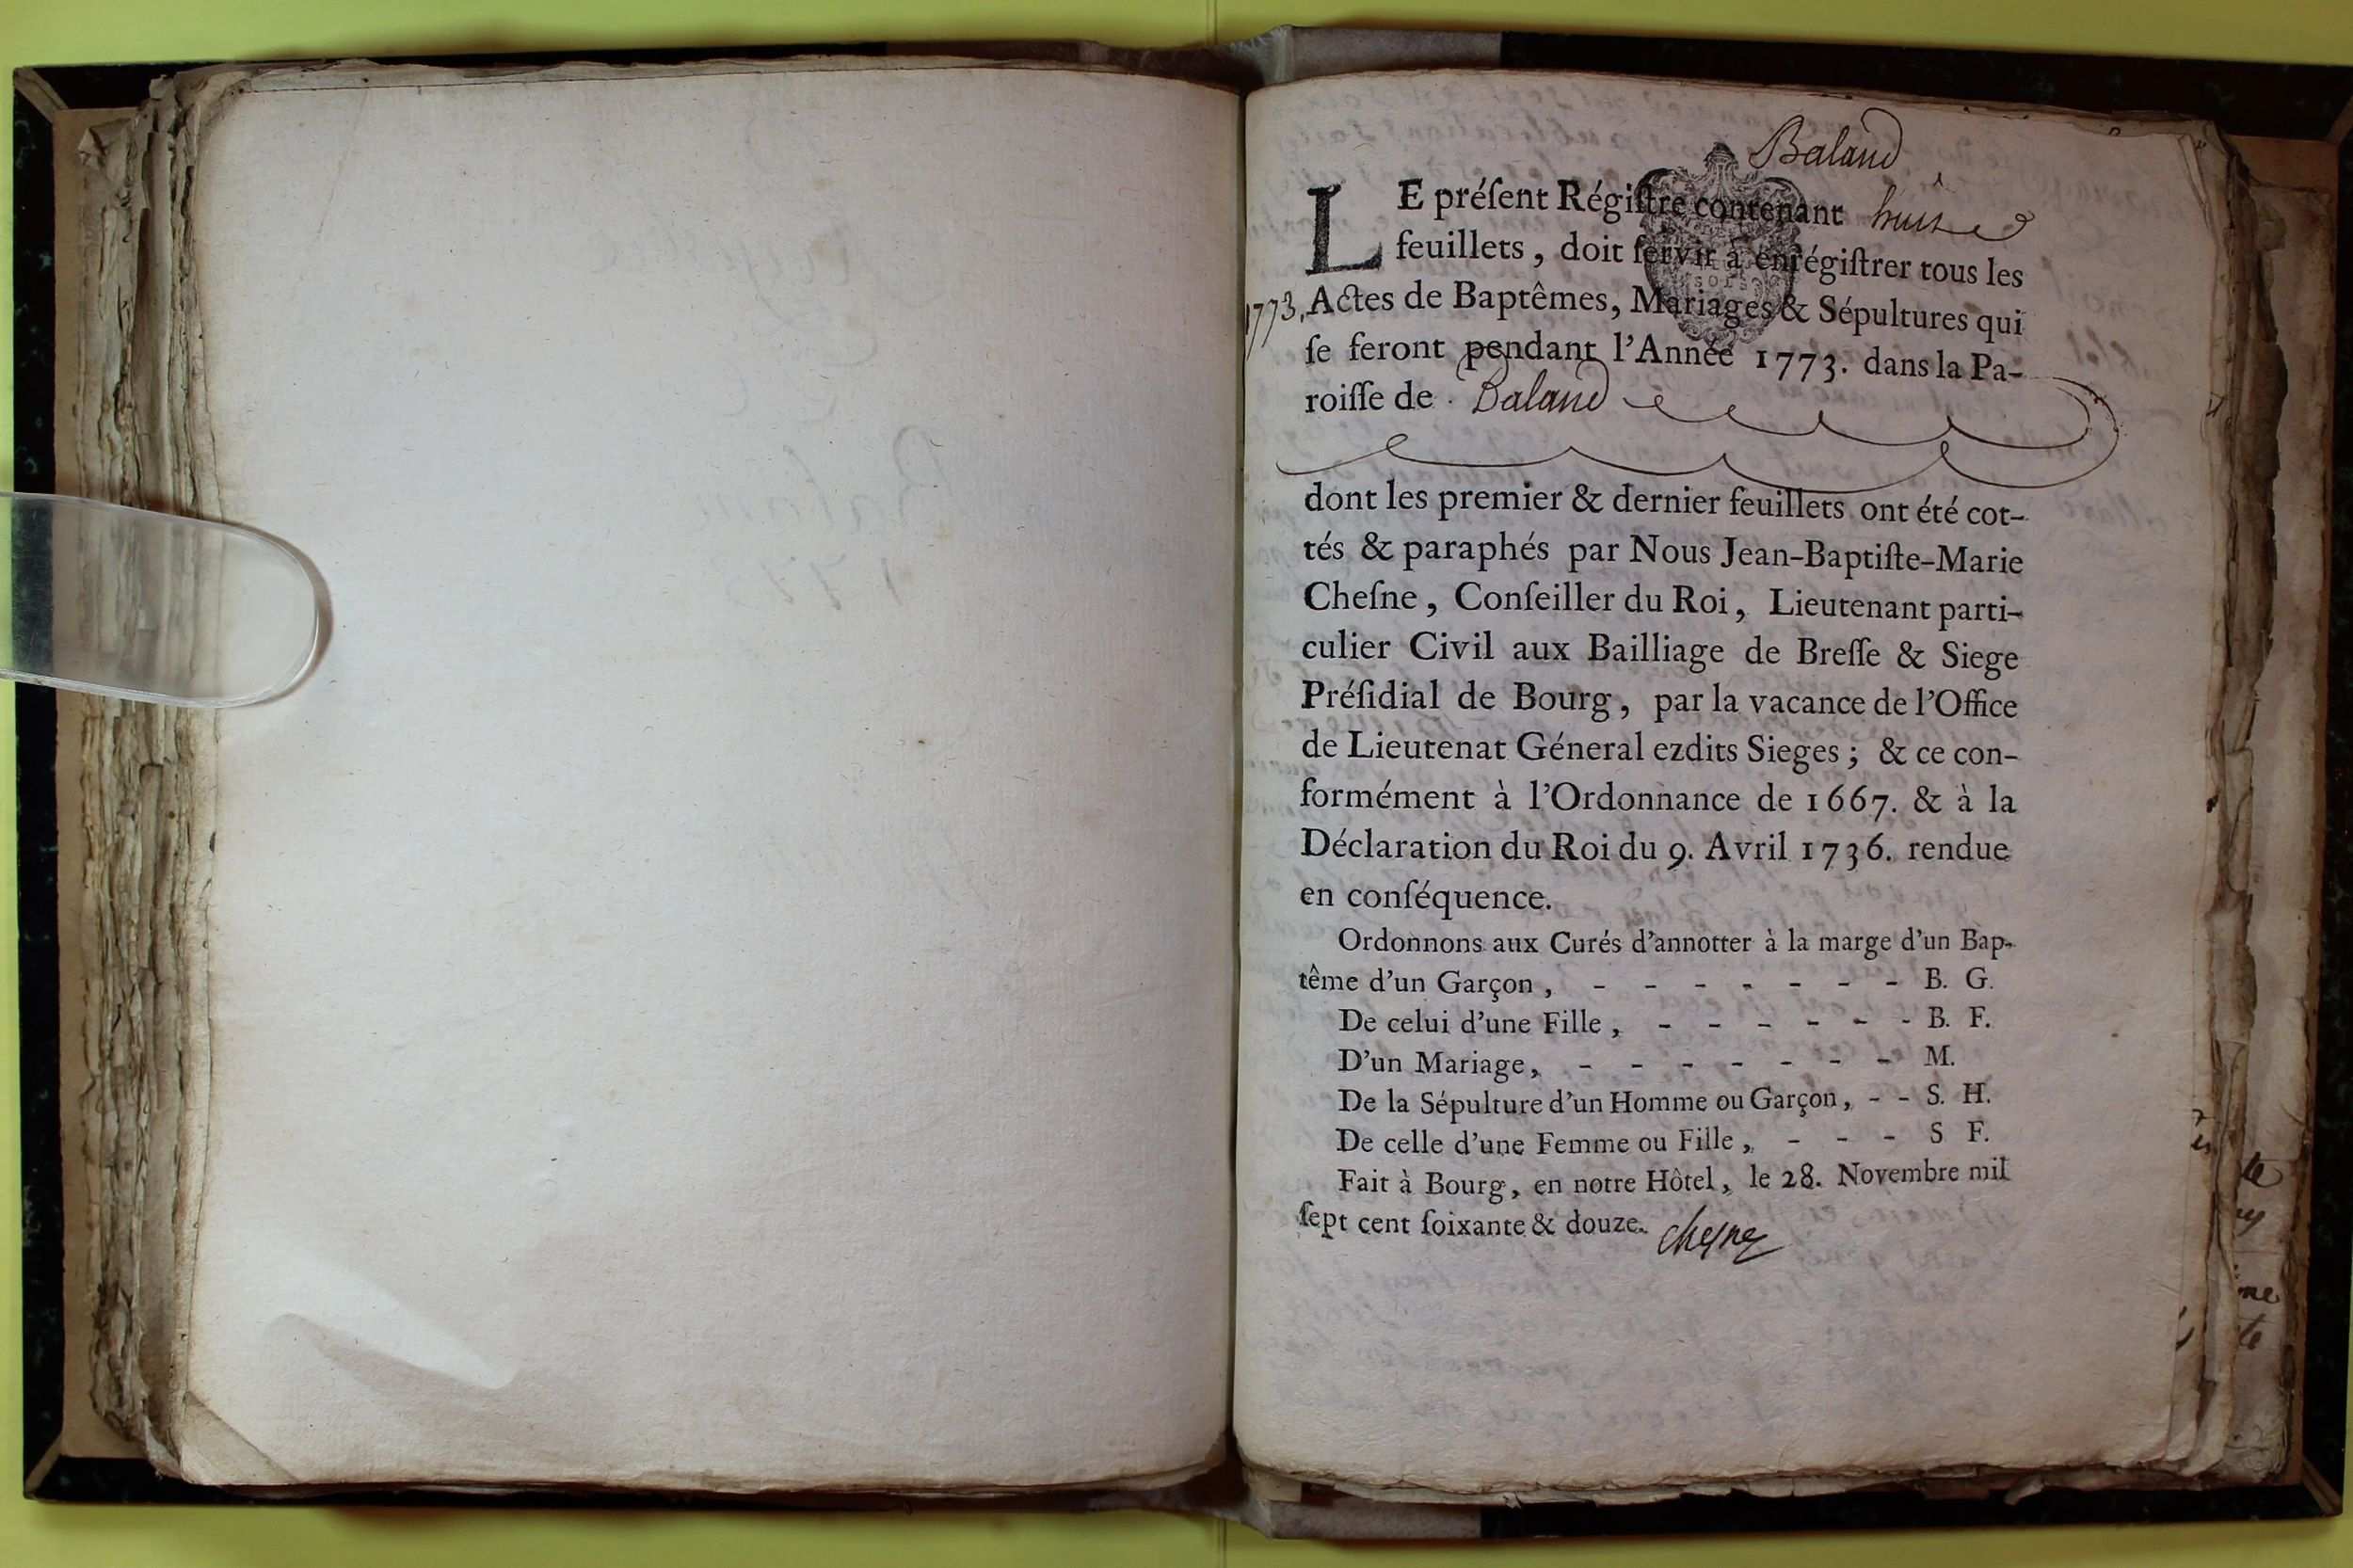 Baland
LE préſent Régiſtre contenant huit
feuillets, doit ſervir à enrégiſtrer tous les
1773. Actes de Baptêmes, Mariages & Sépultures qui
ſe feront pendant l'Année 1773. dans la Pa-
roiſſe de Baland
dont les premier & dernier feuillets ont été cot-
tés & paraphés par Nous Jean-Baptiſte-Marie
Cheſne, Conſeiller du Roi, Lieutenant parti-
culier Civil aux Bailliage de Breſſe & Siege
Préſidial de Bourg, par la vacance de l'Office
de Lieutenat Géneral ezdits Sieges; & ce con-
formément à l'Ordonnance de 1667. & à la
Déclaration du Roi du 9. Avril 1736. rendue
en conſéquence.
Ordonnons aux Curés d'annotter à la marge d'un Bap-
tême d'un Garçon, - - - - - - - B. G.
De celui d'une Fille, - - - - - - B. F.
D'un Mariage, - - - - - - - M.
De la Sépulture d'un Homme ou Garçon, - - S. H.
De celle d'une Femme ou Fille, - - - S F.
Fait à Bourg, en notre Hôtel, le 28. Novembre mil
ſept cent ſoixante & douze. Chesne